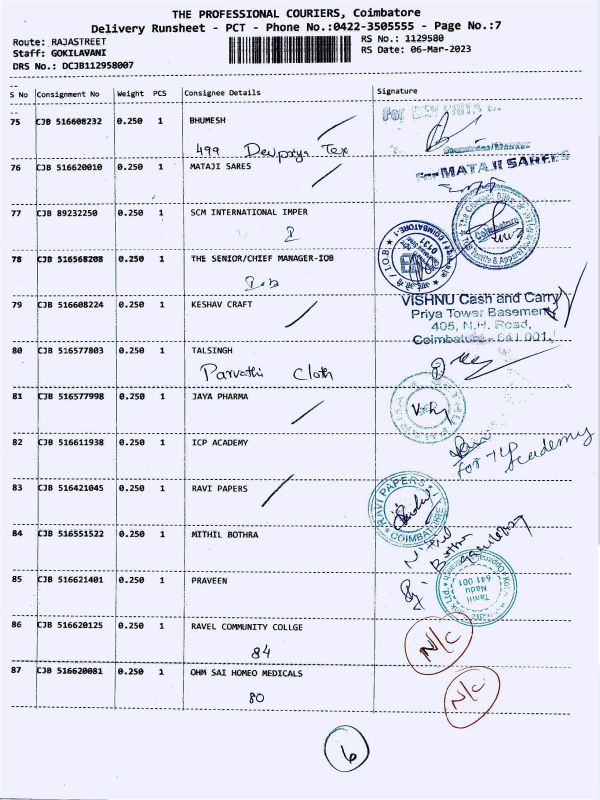 THE PROFESSIONAL COURIERS, Coimbatore
Delivery Runsheet - PCT - Phone No.:0422-3505555 - Page No.:7
Route: RAJASTREET
Staff: GOKILAVANI
DRS No.: DCJB112958007
RS No.: 1129580
RS Date: 06-Mar-2023
S No Consignment No Weight PCS Consignee Details Signature
75 CJB 516608232 0.250 1 BHUMESH
499 Devpriya Tex
76 CJB 516620010 0.250 1 MATAJI SARES
For MATAJI SAREES
77 CJB 89232250 0.250 1 SCM INTERNATIONAL IMPER
Coimbatore
78 CJB 516568208 0.250 1 THE SENIOR/CHIEF MANAGER-IOB
Iob
79 CJB 516608224 0.250 1 KESHAV CRAFT
VISHNU Cash and Carry
Priya Tower Basement
405, N.H. Road,
Coimbatore - 641 001.
80 CJB 516577803 0.250 1 TALSINGH
Parvathi Cloth
81 CJB 516577998 0.250 1 JAYA PHARMA
82 CJB 516611938 0.250 1 ICP ACADEMY
For Academy
83 CJB 516421045 0.250 1 RAVI PAPERS
RAVI PAPERS
COIMBATORE
84 CJB 516551522 0.250 1 MITHIL BOTHRA
Bothra
85 CJB 516621401 0.250 1 PRAVEEN
Tamil
Nadu
641 001
86 CJB 516620125 0.250 1 RAVEL COMMUNITY COLLGE
84
N/C
87 CJB 516620081 0.250 1 OHM SAI HOMEO MEDICALS
80
N/C
6